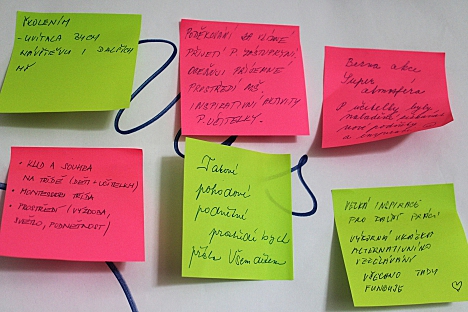 ŠKOLENÍM
- UVÍTALA BYCH
NÁVŠTĚVU I DALŠÍCH
MŠ
PODĚKOVÁNÍ ZA VLÍDNÉ
PŘIJETÍ P. ZÁSTUPKYNÍ.
OBDIVUJI PŘÍJEMNÉ
PROSTŘEDÍ MŠ,
INSPIRATIVNÍ AKTIVITY
P. UČITELKY.
Bezva akce
Super
atmosféra
P. učitelky byly
• KLID A SOUHRA
NA TŘÍDĚ (DĚTI - UČITELKY)
• MONTESSORI TŘÍDA
• PROSTŘEDÍ (VÝZDOBA,
SVĚTLO, PODNĚTNOST)
Takové
pohodové
podnětné
prostředí bych
přála Všem dětem
VELKÁ INSPIRACE
PRO DALŠÍ PRÁCI
VÝBORNÁ UKÁZKA
ALTERNATIVNÍHO
VZDĚLÁVÁNÍ
VŠECHNO TADY
FUNGUJE ♡